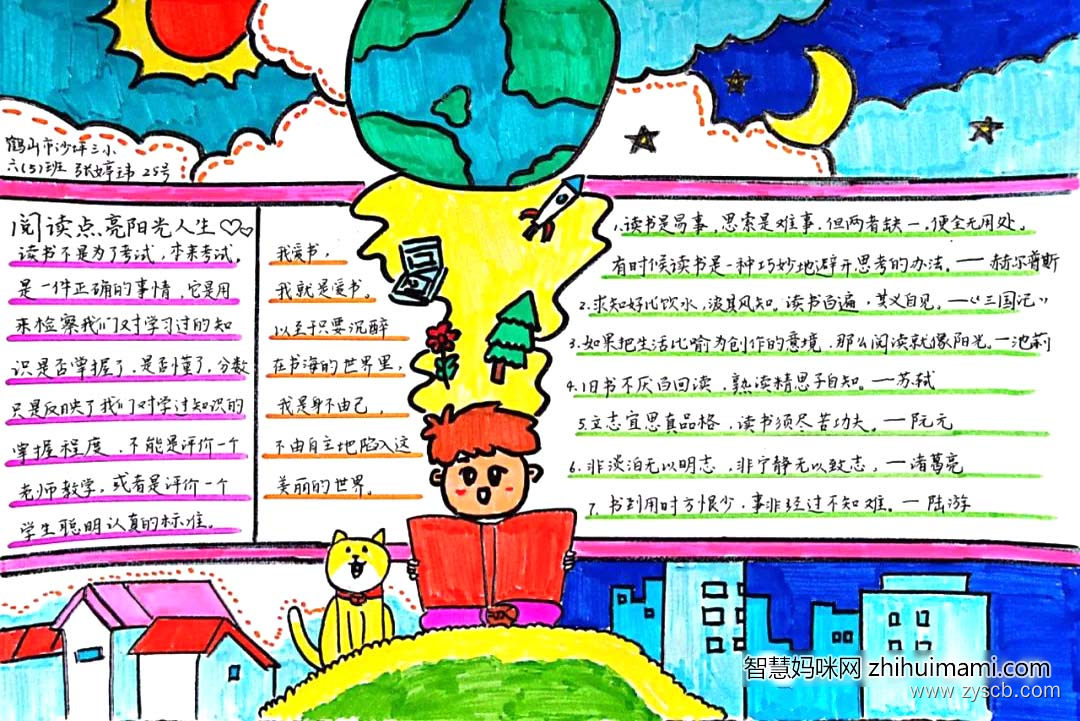 鹤山市沙坪三小
六(5)班 张婷玮 25号
阅读点亮阳光人生
读书不是为了考试，本来考试。
是一件正确的事情，它是用
来检察我们对学习过的知
识是否掌握了，是否懂了，分数
只是反映了我们对学过知识的
掌握程度，不能是评价一个
老师教学，或者是评价一个
学生聪明认真的标准。
我爱书，
我就是爱书。
以至于只要沉醉
在书海的世界里，
我是身不由己，
不由自主地陷入这
美丽的世界。
1.读书是易事，思索是难事，但两者缺一，便全无用处。
有时候读书是一种巧妙地避开思考的办法。—赫尔普斯
2.求知好比饮水，淡其风知。读书百遍，其义自见。—《三国记》
3.如果把生活比喻为创作的意境，那么阅读就像阳光。—池莉
4.旧书不厌百回读，熟读精思子自知。—苏轼
5.立志宜思真品格，读书须尽苦功夫。—阮元
6.非淡泊无以明志，非宁静无以致志，—诸葛亮
7.书到用时方恨少，事非经过不知难。—陆游
智慧妈咪网 zhihuimami.com
www.zyscb.com